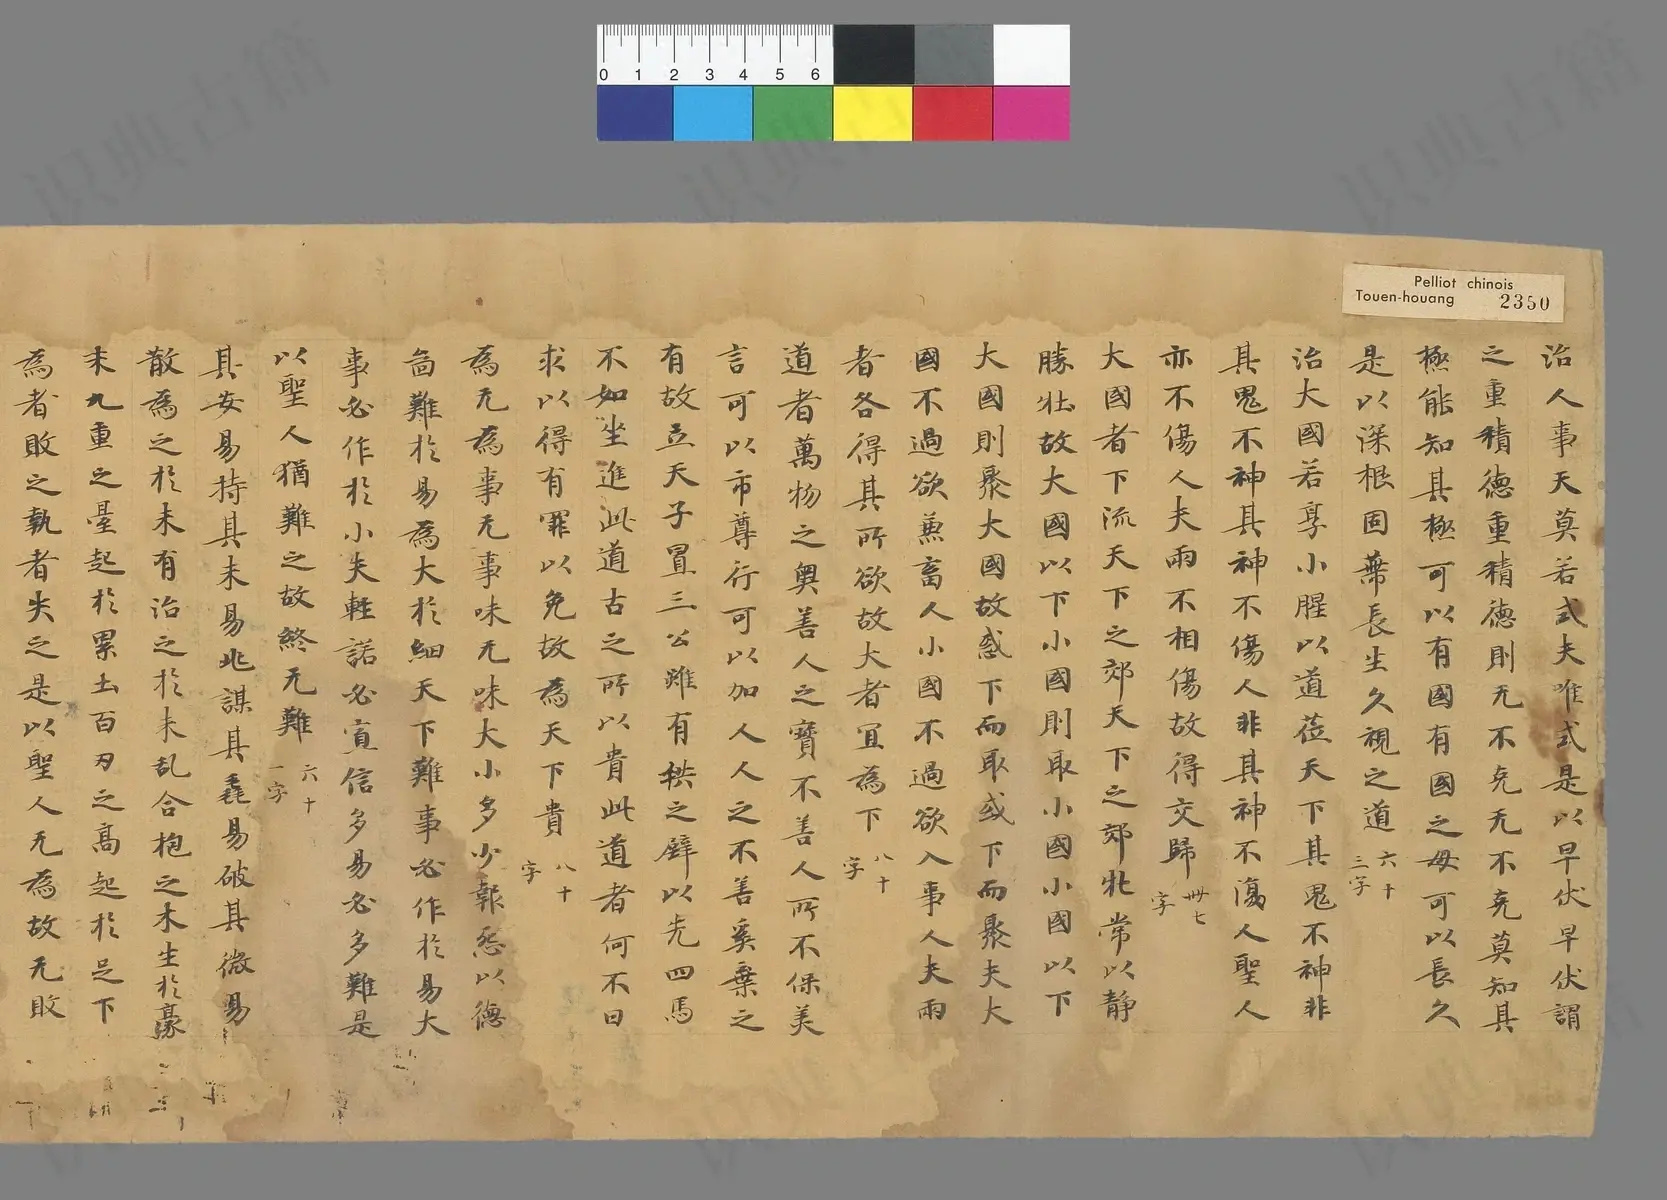 Pelliot chinois
Touen-houang 2350
0 1 2 3 4 5 6
治人事天莫若式夫唯式是以早伏早伏謂
之重積德重積德則无不克无不克莫知其
極能知其極可以有國有國之母可以長久
是以深根固蔕長生久視之道六十三字
治大國若享小腥以道莅天下其鬼不神非
其鬼不神其神不傷人非其神不傷人聖人
亦不傷人夫兩不相傷故得交歸卌七字
大國者下流天下之郊天下之郊牝常以靜
勝牡故大國以下小國則取小國小國以下
大國則聚大國故或下而取或下而聚夫大
國不過欲兼畜人小國不過欲入事人夫兩
者各得其所欲故大者冝為下八十字
道者萬物之奧善人之寶不善人所不保美
言可以市尊行可以加人人之不善奚棄之
有故立天子置三公雖有拱之璧以先四馬
不如坐進此道古之所以貴此道者何不曰
求以得有罪以免故為天下貴八十字
為无為事无事味无味大小多少報怨以德
啚難於易為大於細天下難事必作於易大
事必作於小夫輕諾必寡信多易必多難是
以聖人猶難之故終无難六十一字
其安易持其未易兆謀其毳易破其微易
散為之於未有治之於未乱合抱之木生於豪
末九重之臺起於累土百刃之高起於足下
為者敗之執者失之是以聖人无為故无敗
识典古籍